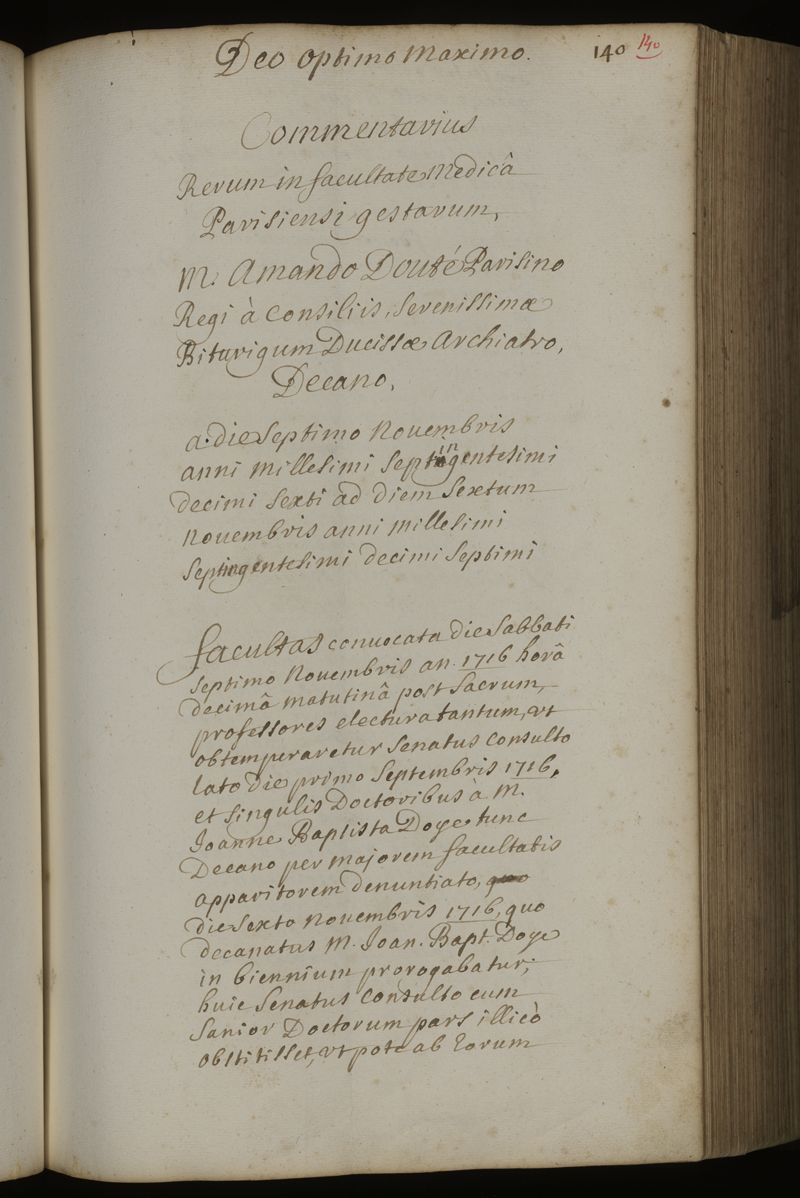 Deo optimo Maximo. 140 140
Commentarius
Rerum in facultate Medicâ
Parisiensi gestarum,
M. Amando Douté Parisino
Regi à Consiliis, Serenissimæ
Biturigum Ducissæ Archiatro,
Decano,
a die Septimo Nouembris
anni Millesimi Septingentesimi
decimi Sexti ad diem Sextum
Nouembris anni Millesimi
Septingentesimi decimi Septimi
facultas conuocata die Sabbati
Septimo Nouembris an. 1716 horâ
decimâ matutinâ post Sacrum,
professores electura tantum, vt
obtemperaretur Senatus Consulto
lato die primo Septembris 1716,
et Singulis Doctoribus a M.
Joanne Baptista Doye tunc
Decano per majorem facultatis
apparitorem denuntiato, quo
die Sexto Nouembris 1716, quo
decanatus M. Joan. Bapt. Doye
in biennium prorogabatur;
huic Senatus Consulto cum
Sanior Doctorum pars illicò
obstitisset, vt pote ab Eorum